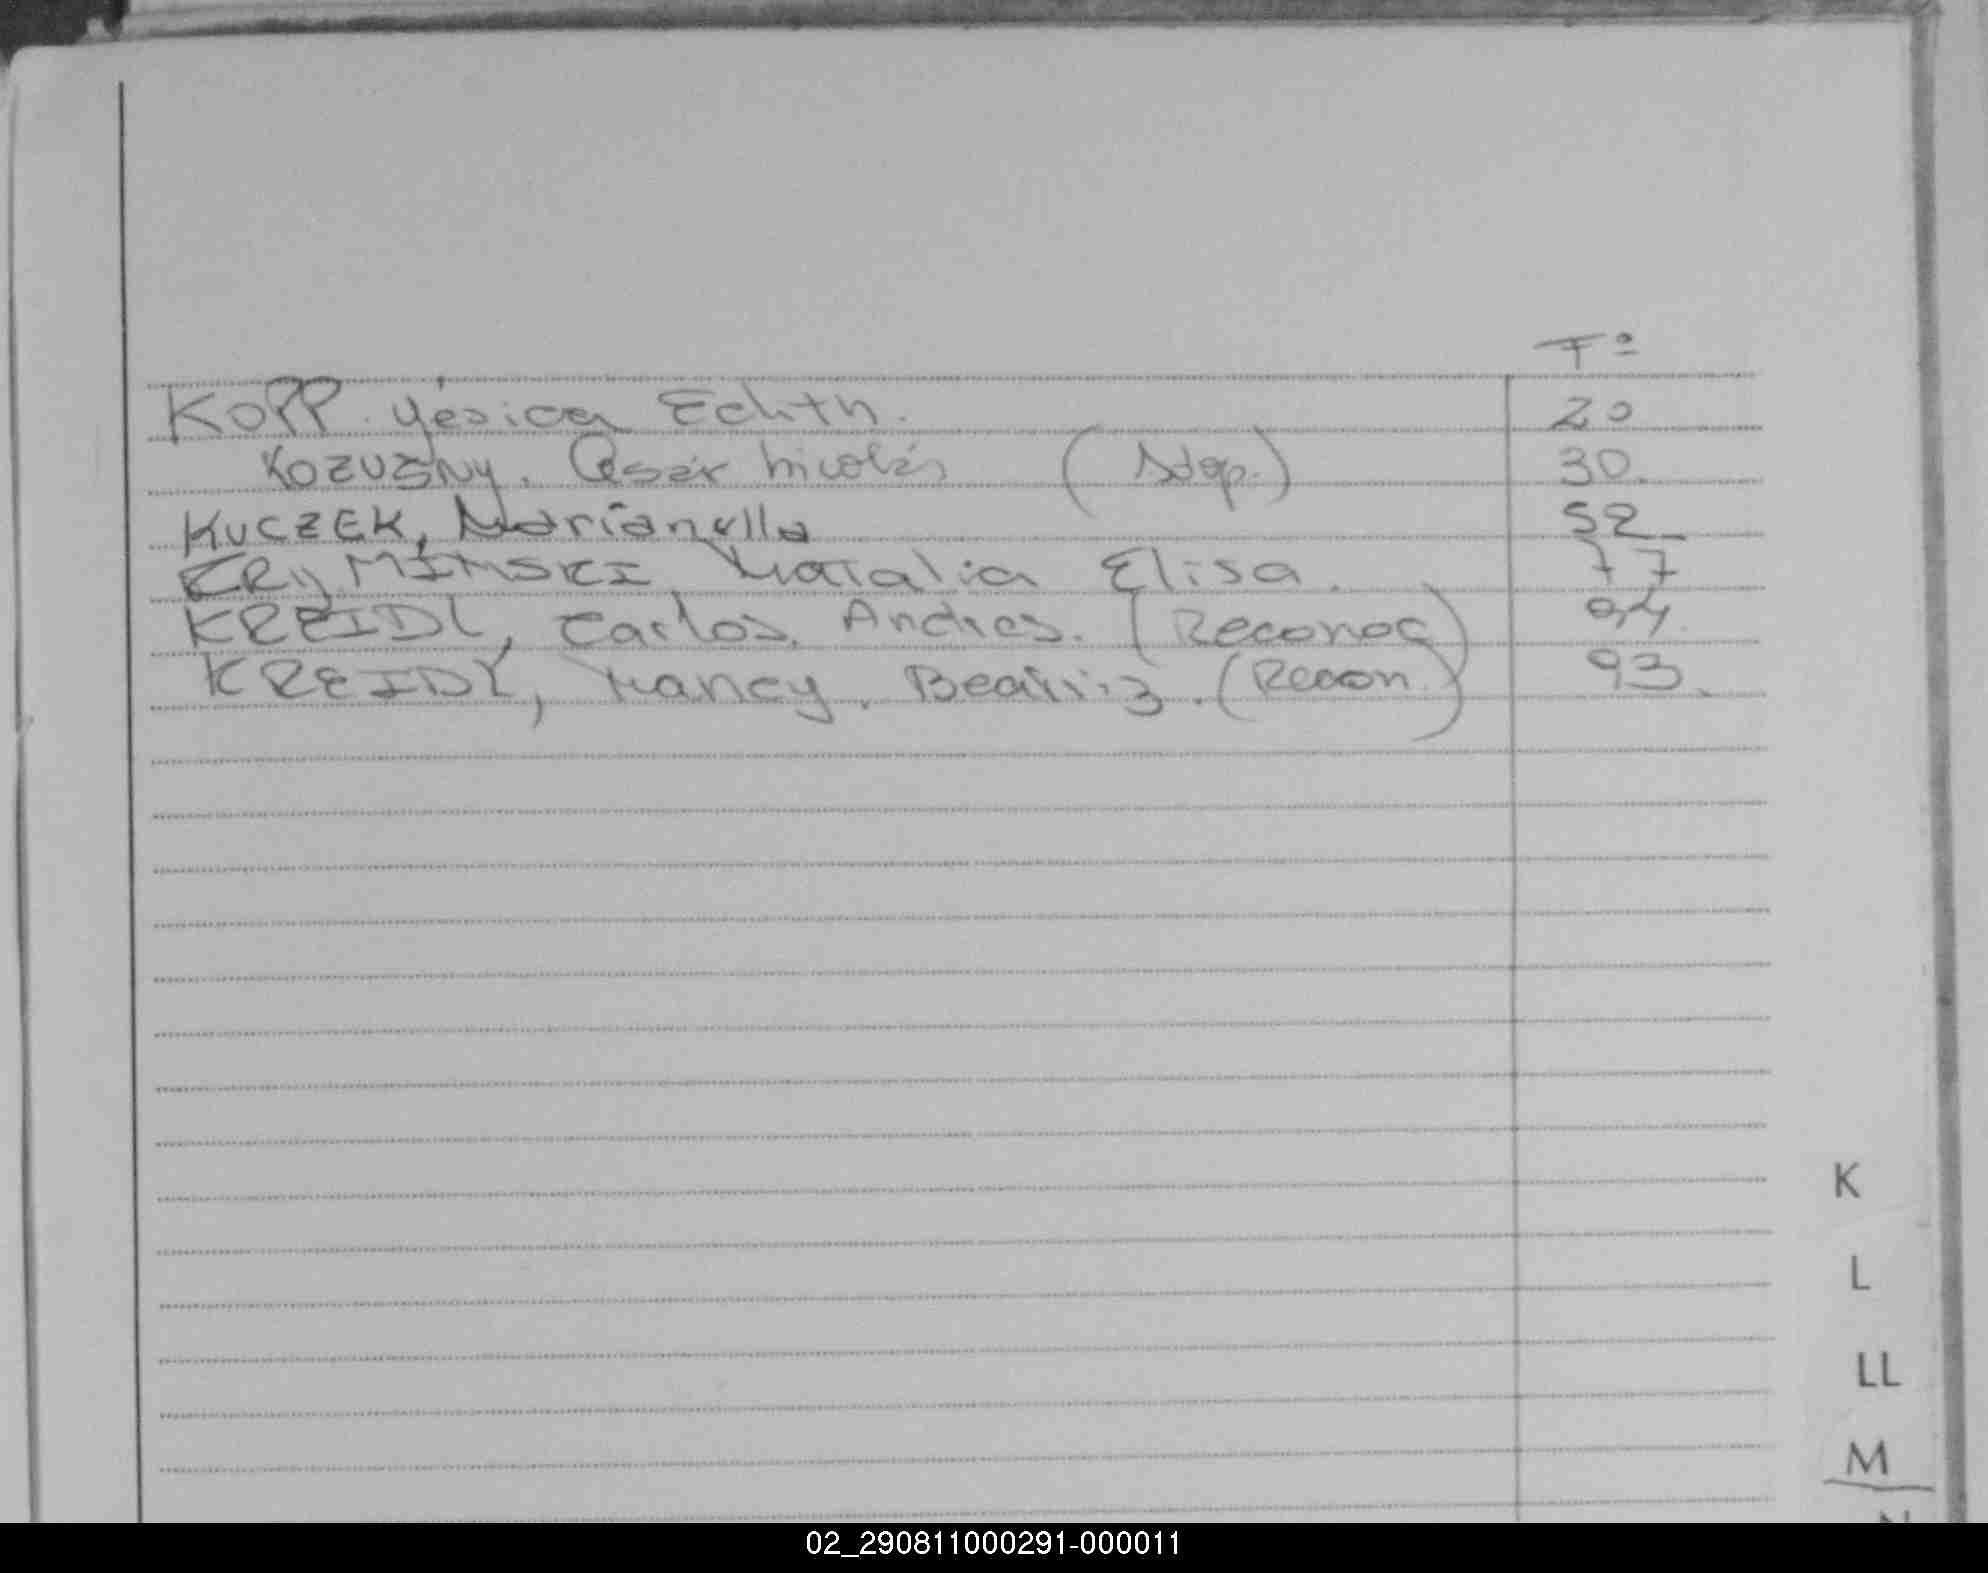 Fº
KOPP. Yésica Edith. 20
KOZUSNY, César Nicolás (Adop.) 30.
KUCZEK, Marianella 52
KRYMINSKI Natalia Elisa. 77
KREIDL, Carlos. Andres. (Reconoc) 94.
KREIDL, Nancy. Beatriz. (Recon.) 93.
K
L
LL
M
N
02_290811000291-000011